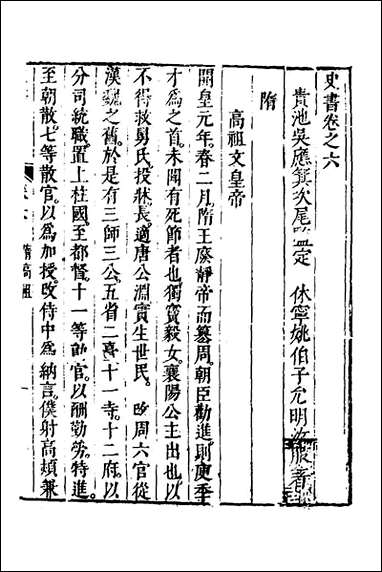 史書卷之六
貴池吳應箕次尾 定　休寧姚伯子允明
隋
高祖文皇帝
開皇元年。春二月。隋王廢靜帝而纂周。朝臣勸進。則庾季
才為之首。未聞有死節者也。獨竇毅女。襄陽公主出也。以
不得救舅氏投牀長。適唐公淵。實生世民。 周六官從
漢魏之舊。於是有三師三公。五省二臺。十一寺。十二府。以
分司統職。置上柱國。至都督。十一等 官。以酬勤勞。特進。
至朝散。七等散官。以為加授。改侍中為納言。僕射高熲兼
隋高祖